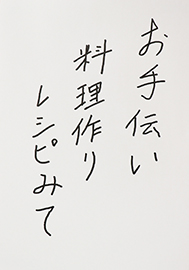 お手伝い
料理作り
レシピみて